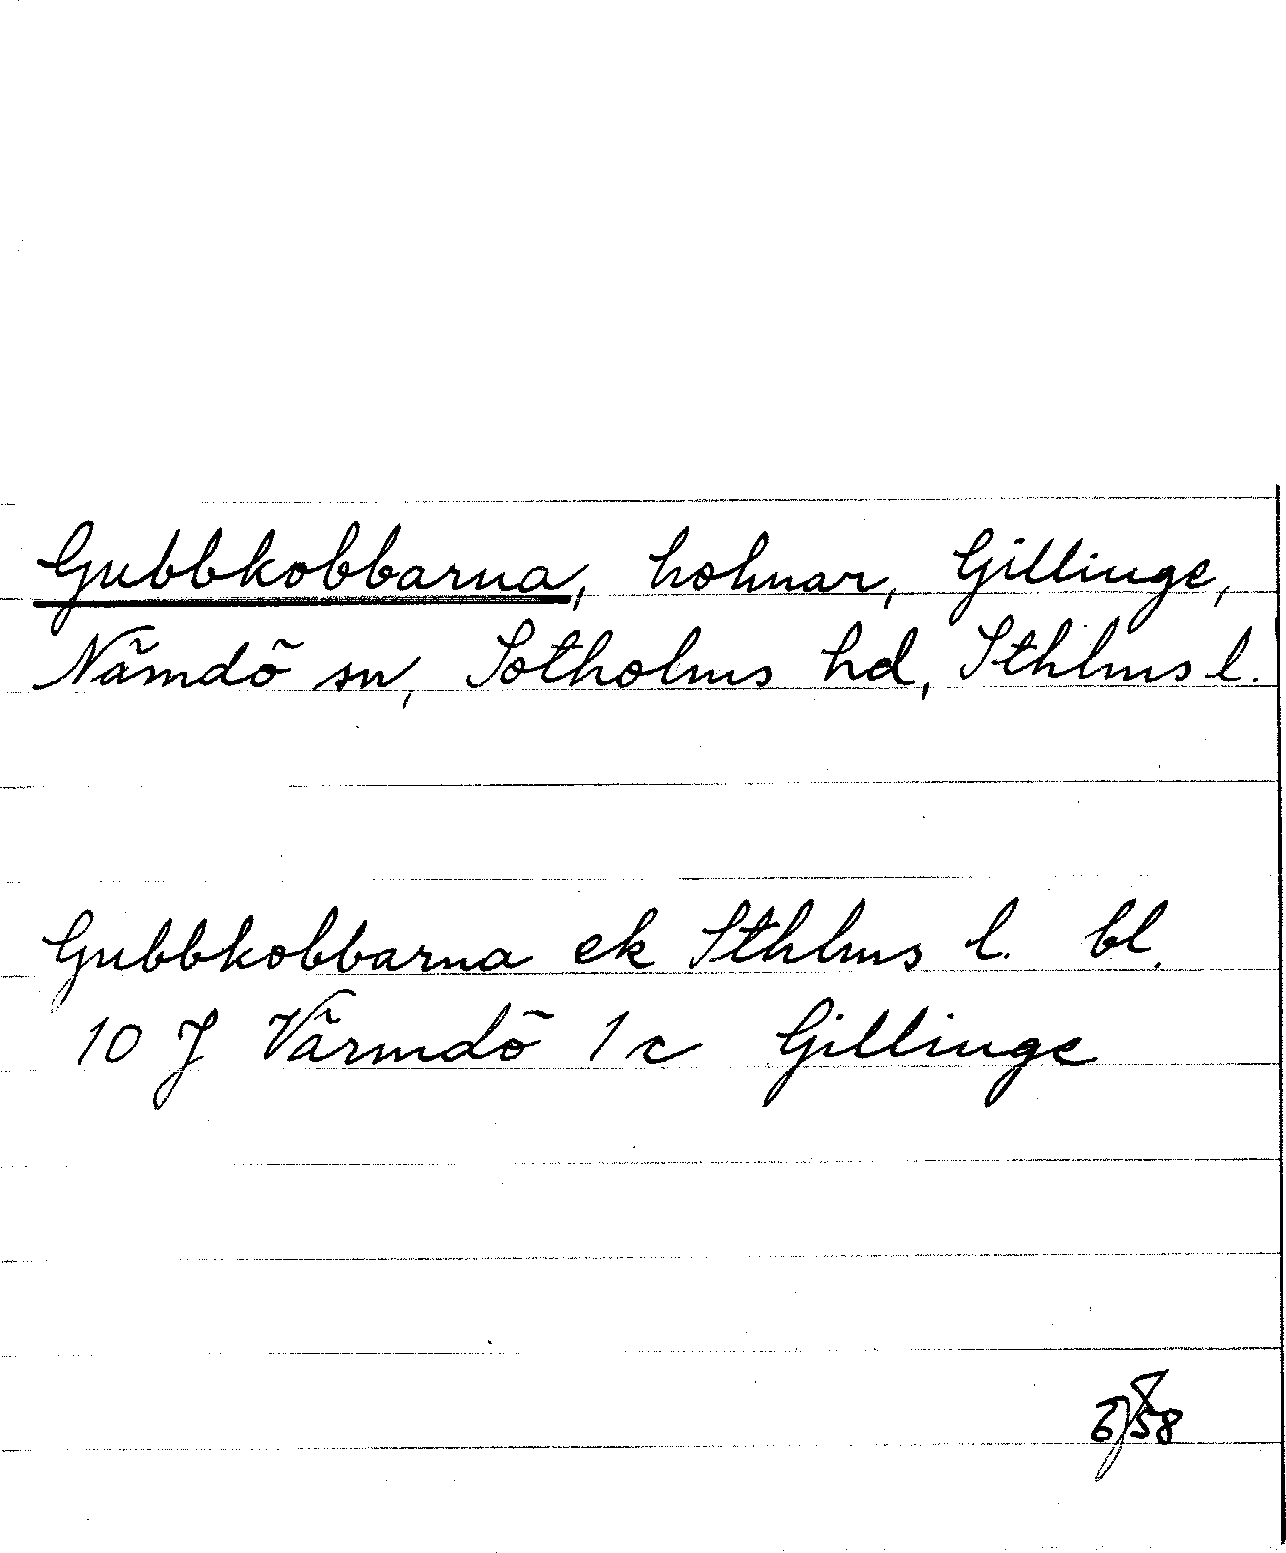 Gubbkobbarna, holmar, Gillinge,
Nämdö sn, Sotholms hd, Sthlms l.
Gubbkobbarna ek Sthlms l. bl.
10 J Värmdö 1 c Gillinge